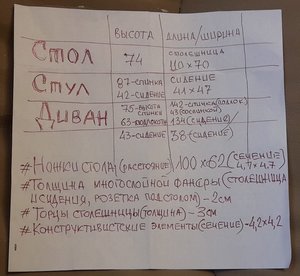 ВЫСОТА ДЛИНА/ШИРИНА
СТОЛ 74 СТОЛЕШНИЦА
110 x 70
СТУЛ 87-СПИНКА СИДЕНИЕ
42-СИДЕНИЕ 41 x 47
ДИВАН 75-ВЫСОТА СПИНКИ 142-СПИНКА
63-ПОДЛОКОТН 43
134 (СИДЕНИЯ)
43-СИДЕНИЕ 38 (СИДЕНИЯ)
#НОЖКИ СТОЛА (РАССТОЯНИЕ) 100 x 62 (СЕЧЕНИЕ 4,7 x 4,7)
#ТОЛЩИНА МНОГОСЛОЙНОЙ ФАНЕРЫ (СТОЛЕШНИЦА
И СИДЕНИЯ, РОЗЕТКА ПОД СТОЛОМ) - 2 СМ
#ТОРЦЫ СТОЛЕШНИЦЫ (ТОЛЩИНА) - 3 СМ
#КОНСТРУКТИВИСТСКИЕ ЭЛЕМЕНТЫ (СЕЧЕНИЕ) - 4,2 x 4,2